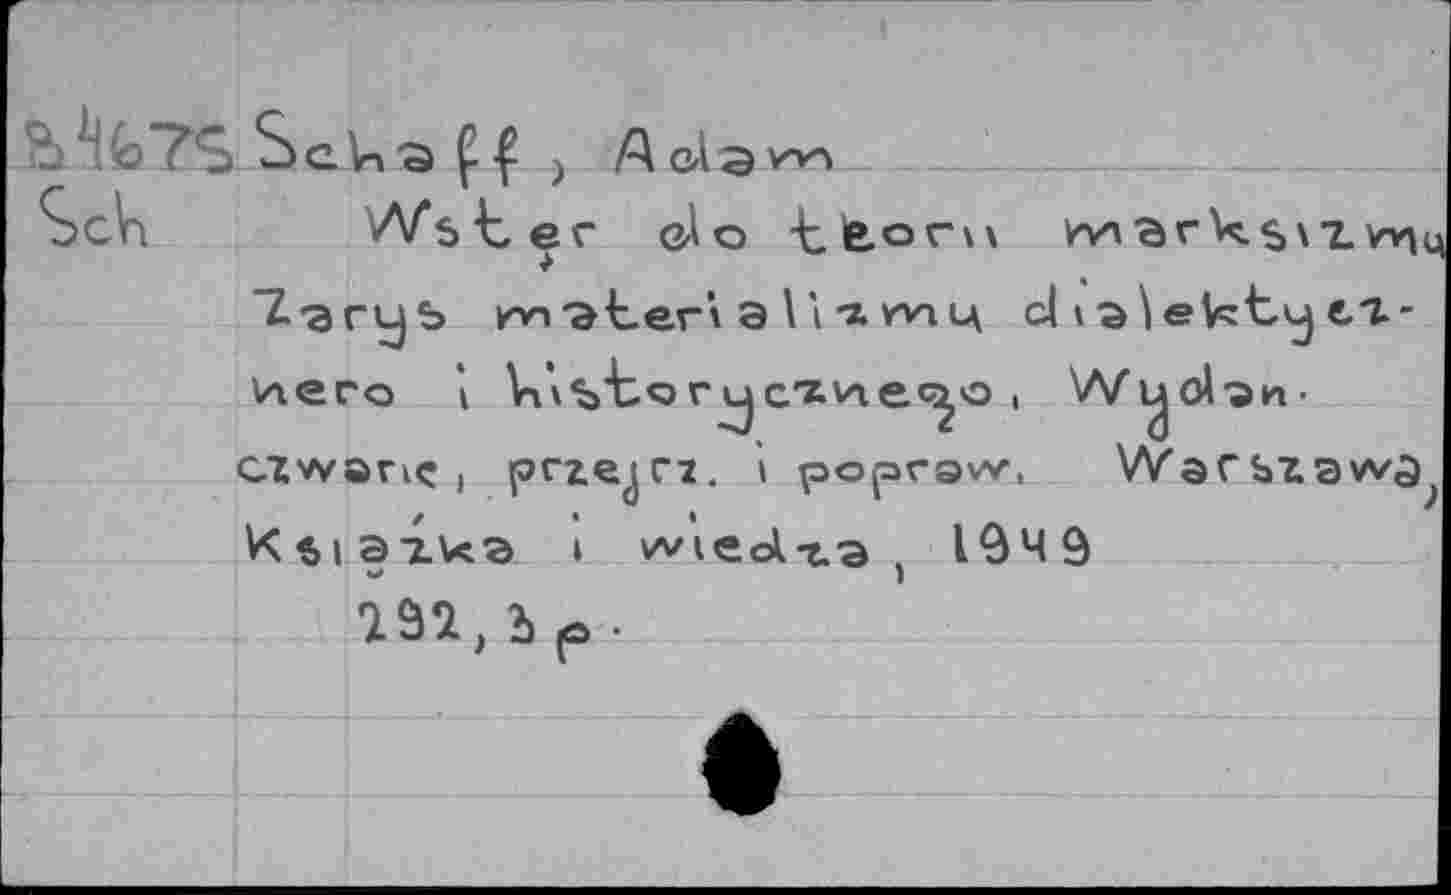 B4675 Schaff, Adam
Sch Wstęp do teorii marksizmu
Zarys materializmu dialektycz-
nego i historycznego, Wydan.
czwarte, przejrz. i popraw. Warszawa,
Książka i wiedza, 1949
292, 3 p.